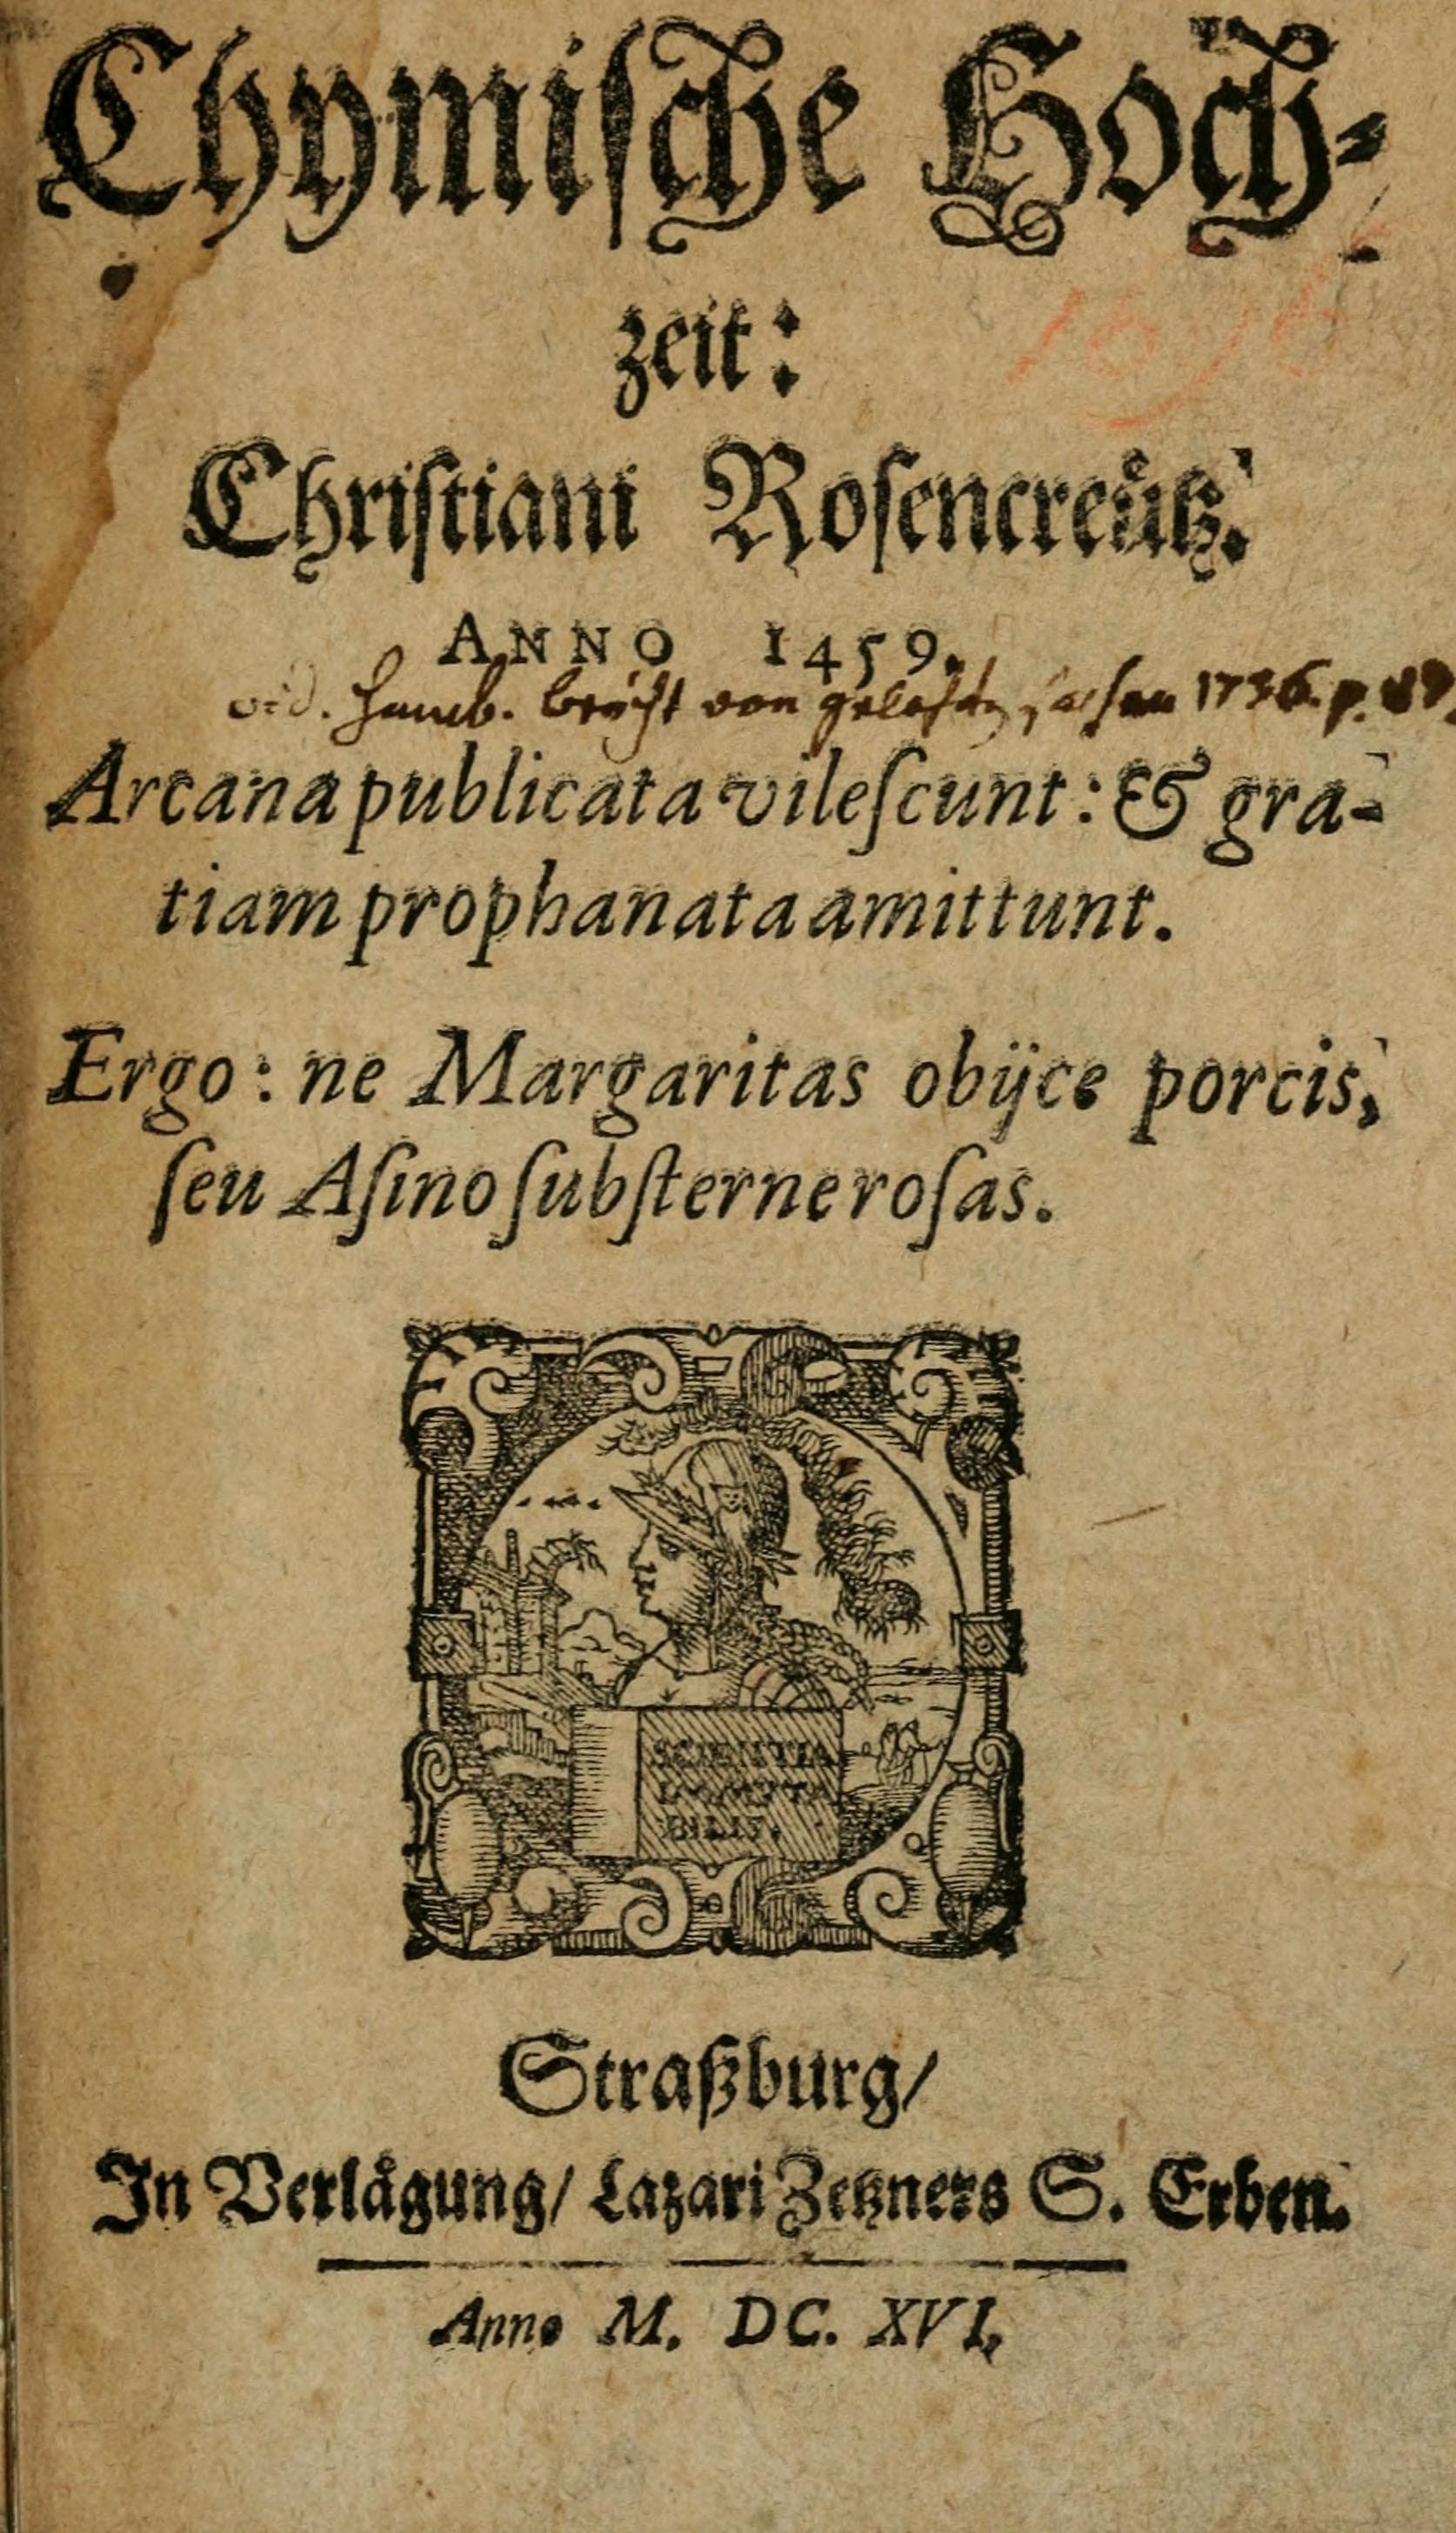 Chymiſche Hoch-
zeit:
Chriſtiani Roſencreůtz.
ANNO 1459.
vid. Hamb. bericht von 1736. p.
Arcana publicata vileſcunt: & gra-
tiam prophanata amittunt.
Ergo: ne Margaritas obijce porcis,
ſeu Aſino ſubſterne roſas.
SCIENTIA
IMMVTA
BILIS.
Straßburg/
In Verlågung/ Lazari Zetzners S. Erben.
Anno M. DC. XVI.